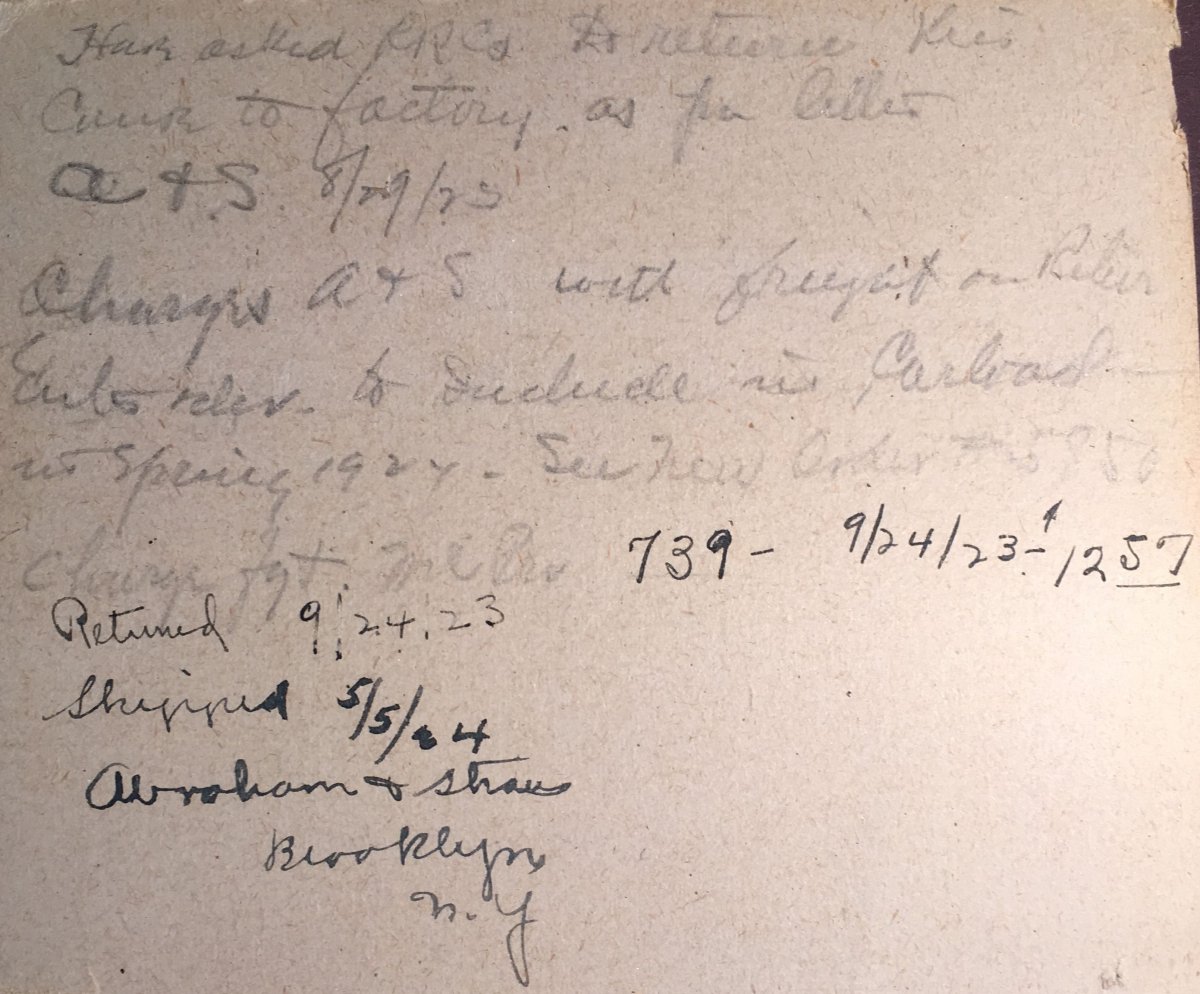 Have asked RR Co to return this
Canoe to factory. as per letter
A & S. 8/29/23
Charges A & S with freight on Return
to include in Carload -
in Spring 1924 - See New Order #
Charge fgt.
739 - 9/24/23 - 1257
Returned 9/24.23
Shipped 5/5/24
Abraham & Straus
Brooklyn
N.Y